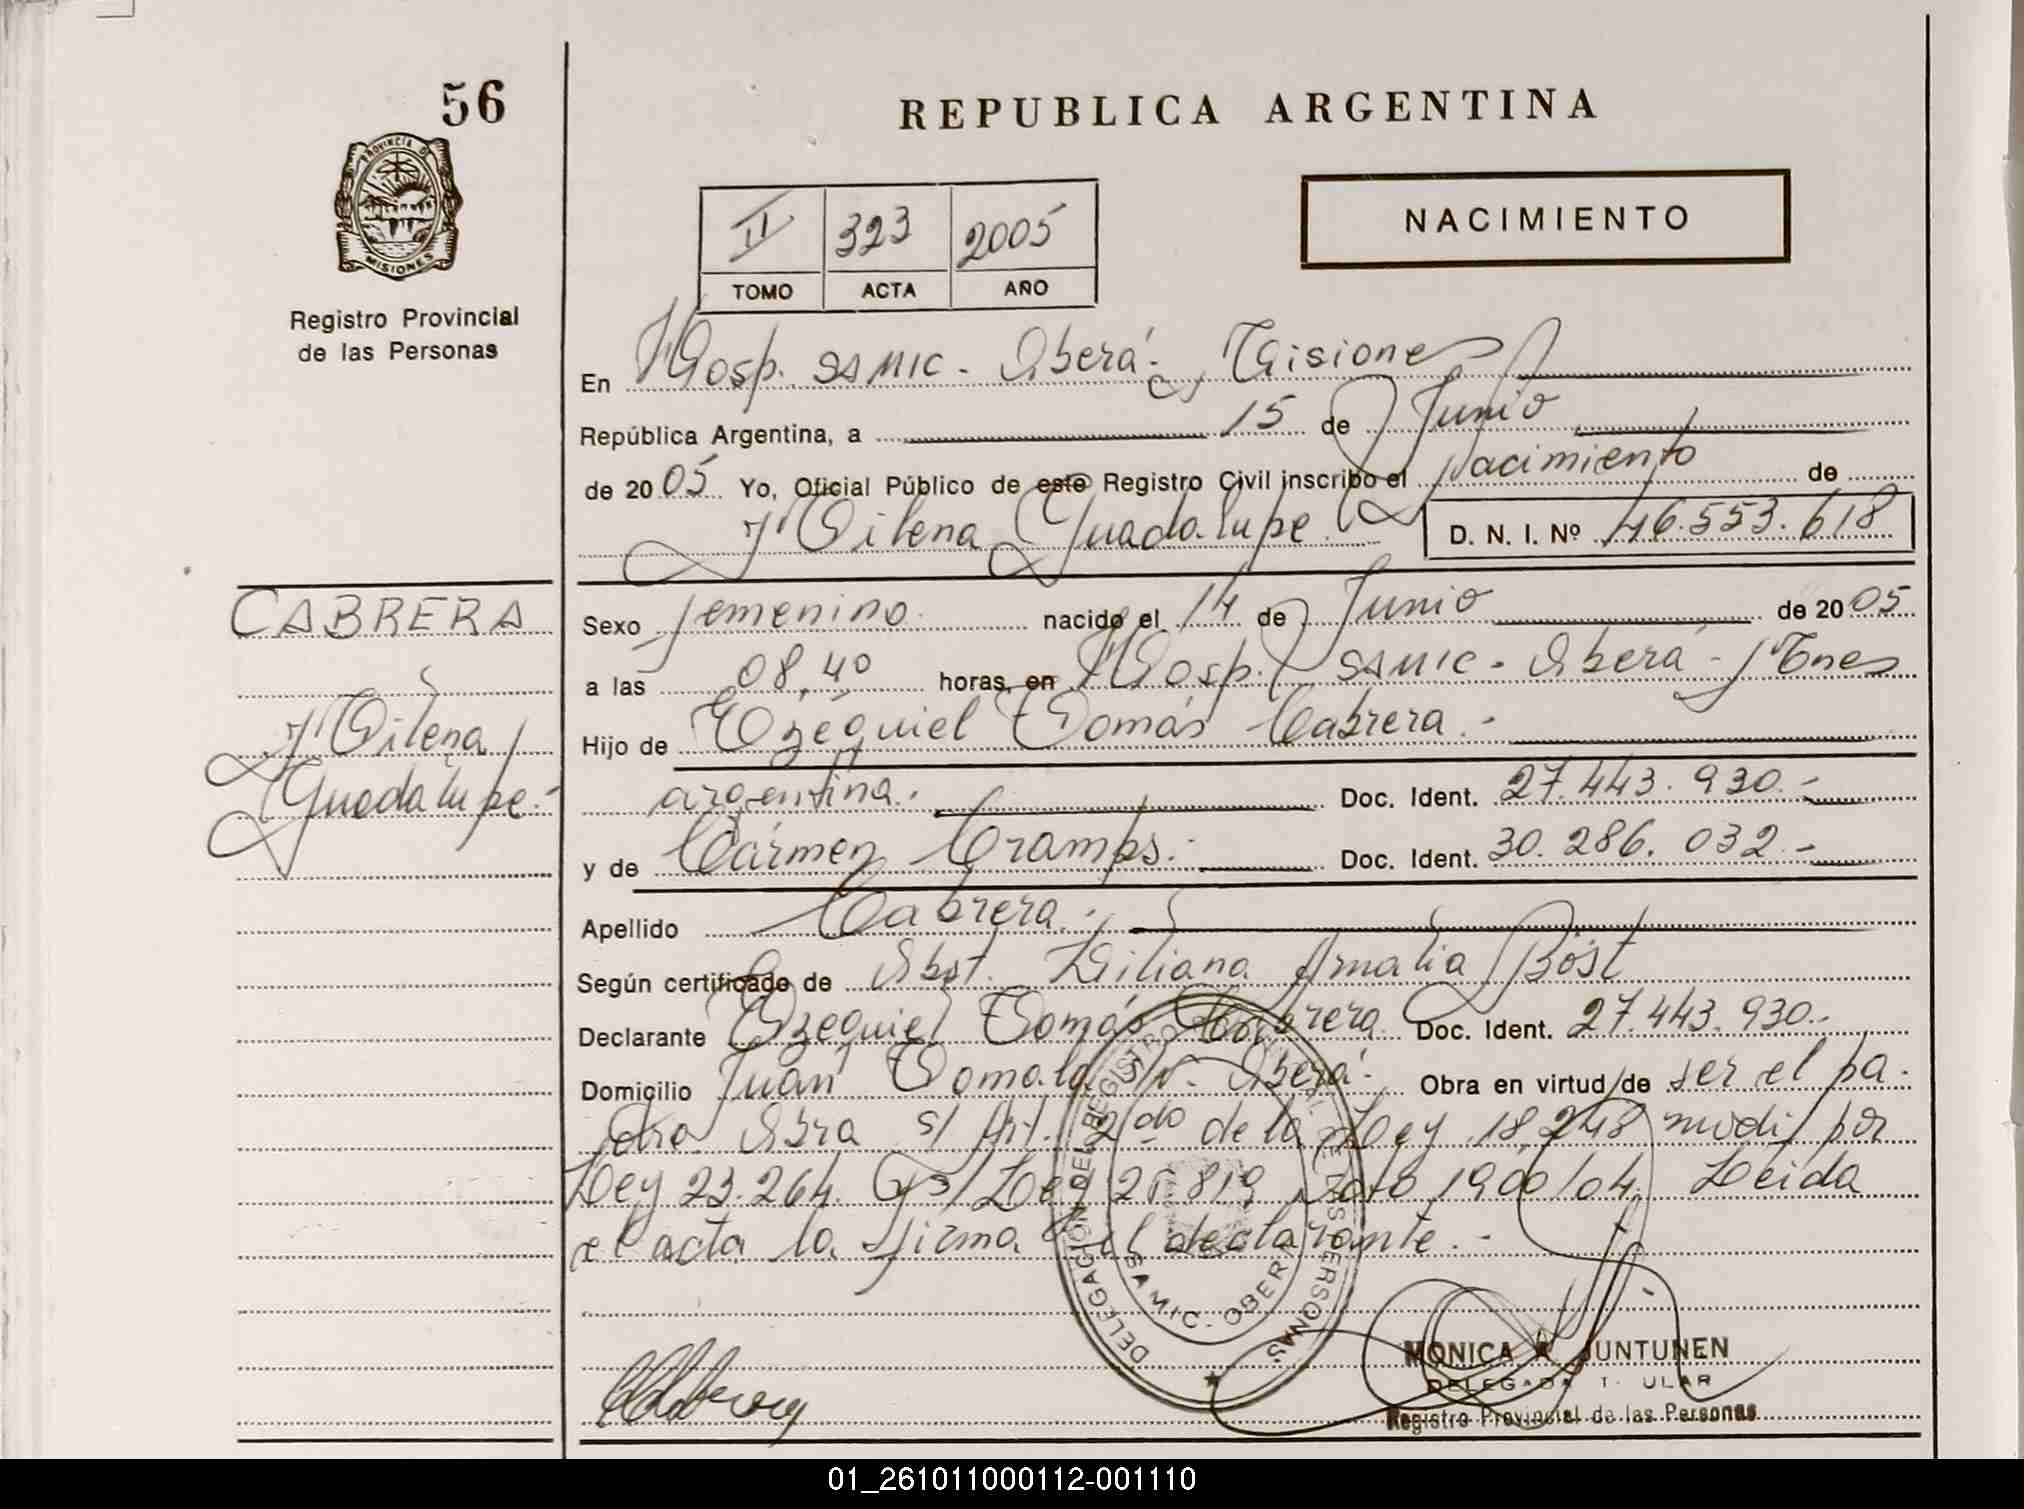 56
REPUBLICA ARGENTINA
PROVINCIA DE
MISIONES
Registro Provincial
de las Personas
II 323 2005
TOMO ACTA AÑO
NACIMIENTO
En Hosp. SAMIC - Oberá - Misiones
República Argentina, a 15 de Junio
de 2005 Yo, Oficial Público de este Registro Civil inscribo el Nacimiento de
Milena Guadalupe D. N. I. Nº 46.553.618
CABRERA
Milena
Guadalupe.-
Sexo femenino nacido el 14 de Junio de 2005
a las 08,40 horas, en Hosp. SAMIC - Oberá - Mnes
Hijo de Ezequiel Tomás Cabrera.-
argentina.- Doc. Ident. 27.443.930.-
y de Cármen Cramps.- Doc. Ident. 30.286.032.-
Apellido Cabrera.-
Según certificado de Obst. Liliana Amalia Böst
Declarante Ezequiel Tomás Cabrera Doc. Ident. 27.443.930.-
Domicilio Juán Tomala S/N. Oberá- Obra en virtud de ser el pa-
dre Obra s/ Art. 2do de la Ley 18.248 modif por
Ley 23.264. Ley 25.819 Dcto 1900/04. Leida
el acta la firma el declarante.-
DELEGACION DEL REGISTRO PROVINCIAL DE LAS PERSONAS.
SAMIC. OBERA
MONICA R. JUNTUNEN
DELEGADA TITULAR
Registro Provincial de las Personas
01_261011000112-001110